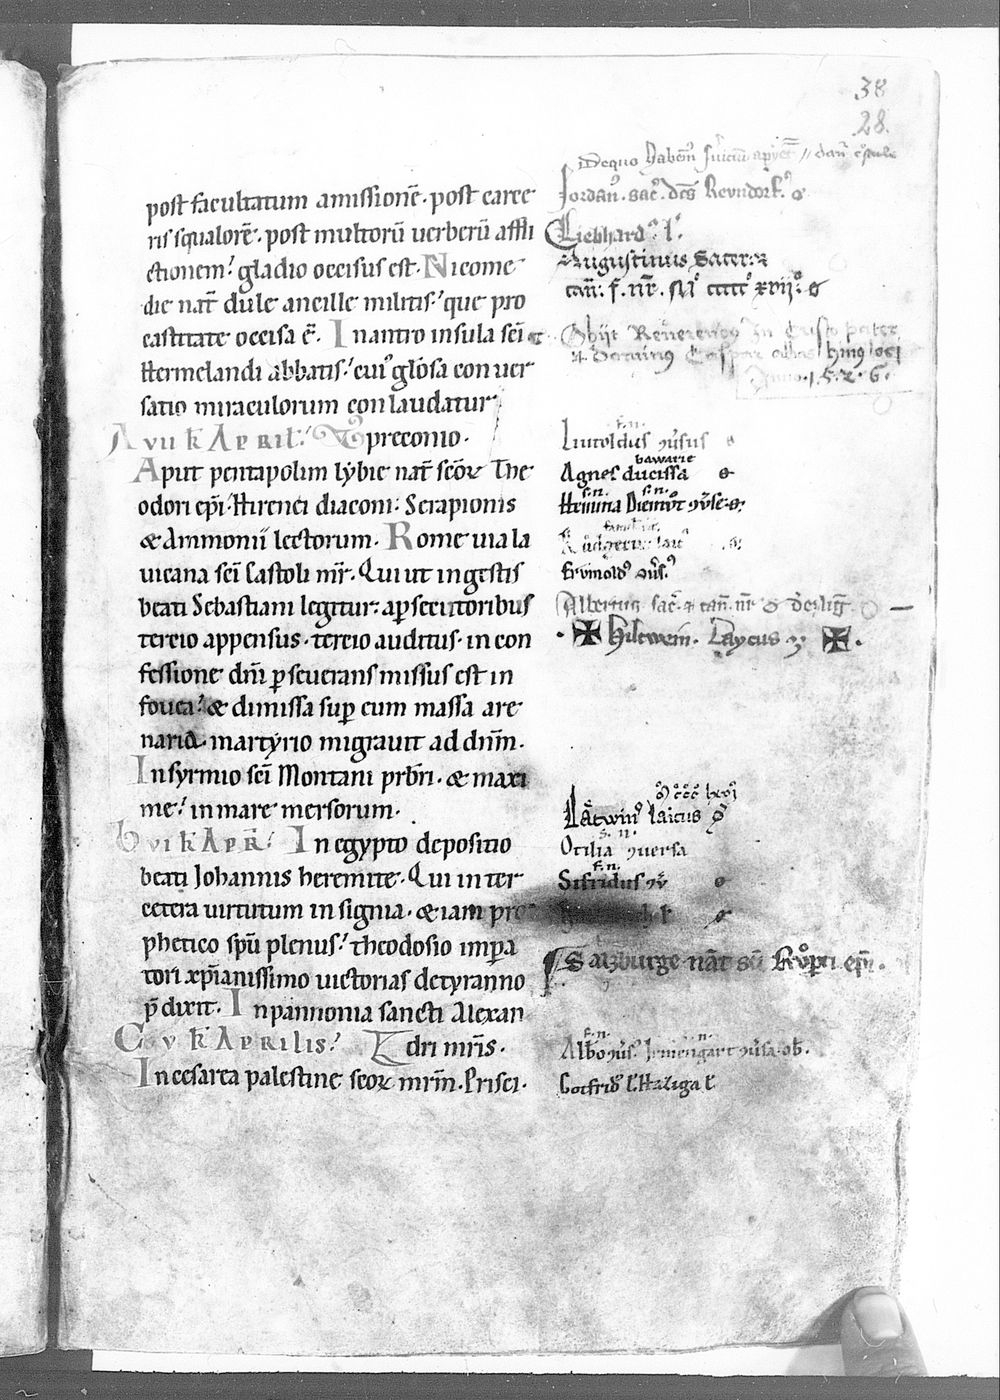 38
28.
post facultatum amissionē. post carce
ris squalorē. post multorū uerberū affli
ctionem? gladio occisus est. Nicome
die nat̄ dule ancille militis? que pro
castitate occisa ē. In antro insula sc̄i
Hermelandi abbatis? cui᷒ gl̄osa conuer
satio miraculorum conlaudatur
A vii k̄ Aprīl? preconio.
Aput pentapolim lybie nat̄ sc̄oꝝ The
odori ep̄i. Hirenei diaconi. Serapionis
& Ammonii lectorum. Rome uia la
uicana sc̄i Castoli mr̄. Qui ut in gestis
beati Sebastiani legitur. a ꝑsecutoribus
tercio appensus. tercio auditus. in con
fessione dn̄i ꝑseuerans missus est in
fouea? & dimissa suꝑ eum massa are
naria. martyrio migrauit ad dn̄m.
In syrmio sc̄i Montani prb̄ri. & maxi
me? in mare mersorum.
B vi k̄ Apr̄? In egypto depositio
beati Johannis heremite. Qui inter
cetera uirtutum insignia. & iam pro
phetico spū plenus? theodosio imꝑa
tori xp̄ianissimo uictorias de tyranno
p̄dixit. In pannonia sancti Alexan
C v k̄ Aprilis? dri mr̄is.
In cesarea palestine scoꝝ mr̄m. Prisci.
Jordan᷒. sac̄. dc̄s Revndorf.
Liebhard᷒. l᷒.
Augustinus Sacer.
can̄. f. nr̄. xvii
Obijt Reuerend᷒ In Cristo pater
& Dominus Caspar abbas hui᷒ loci
Anno. 1. 5. 2. 6.
Liutoldus ꝯuersus
bawarie
Agnes ducissa
s.n. s.n.
Hemma Diemůt ꝯuse.
Albertus sac̄. & can̄. nr̄
✠ Hiltwein. Laycus ✠.
Lātwin᷒ laicus
s. n.
Otilia ꝯuersa
f. n.
Sifridus ꝯ
Salzburge nāt sc̄i Růpti ep̄i.
f. n.
Albo ꝯus. Irmingart ꝯusa. ob.
Gotfrid᷒ l. Haziga l.